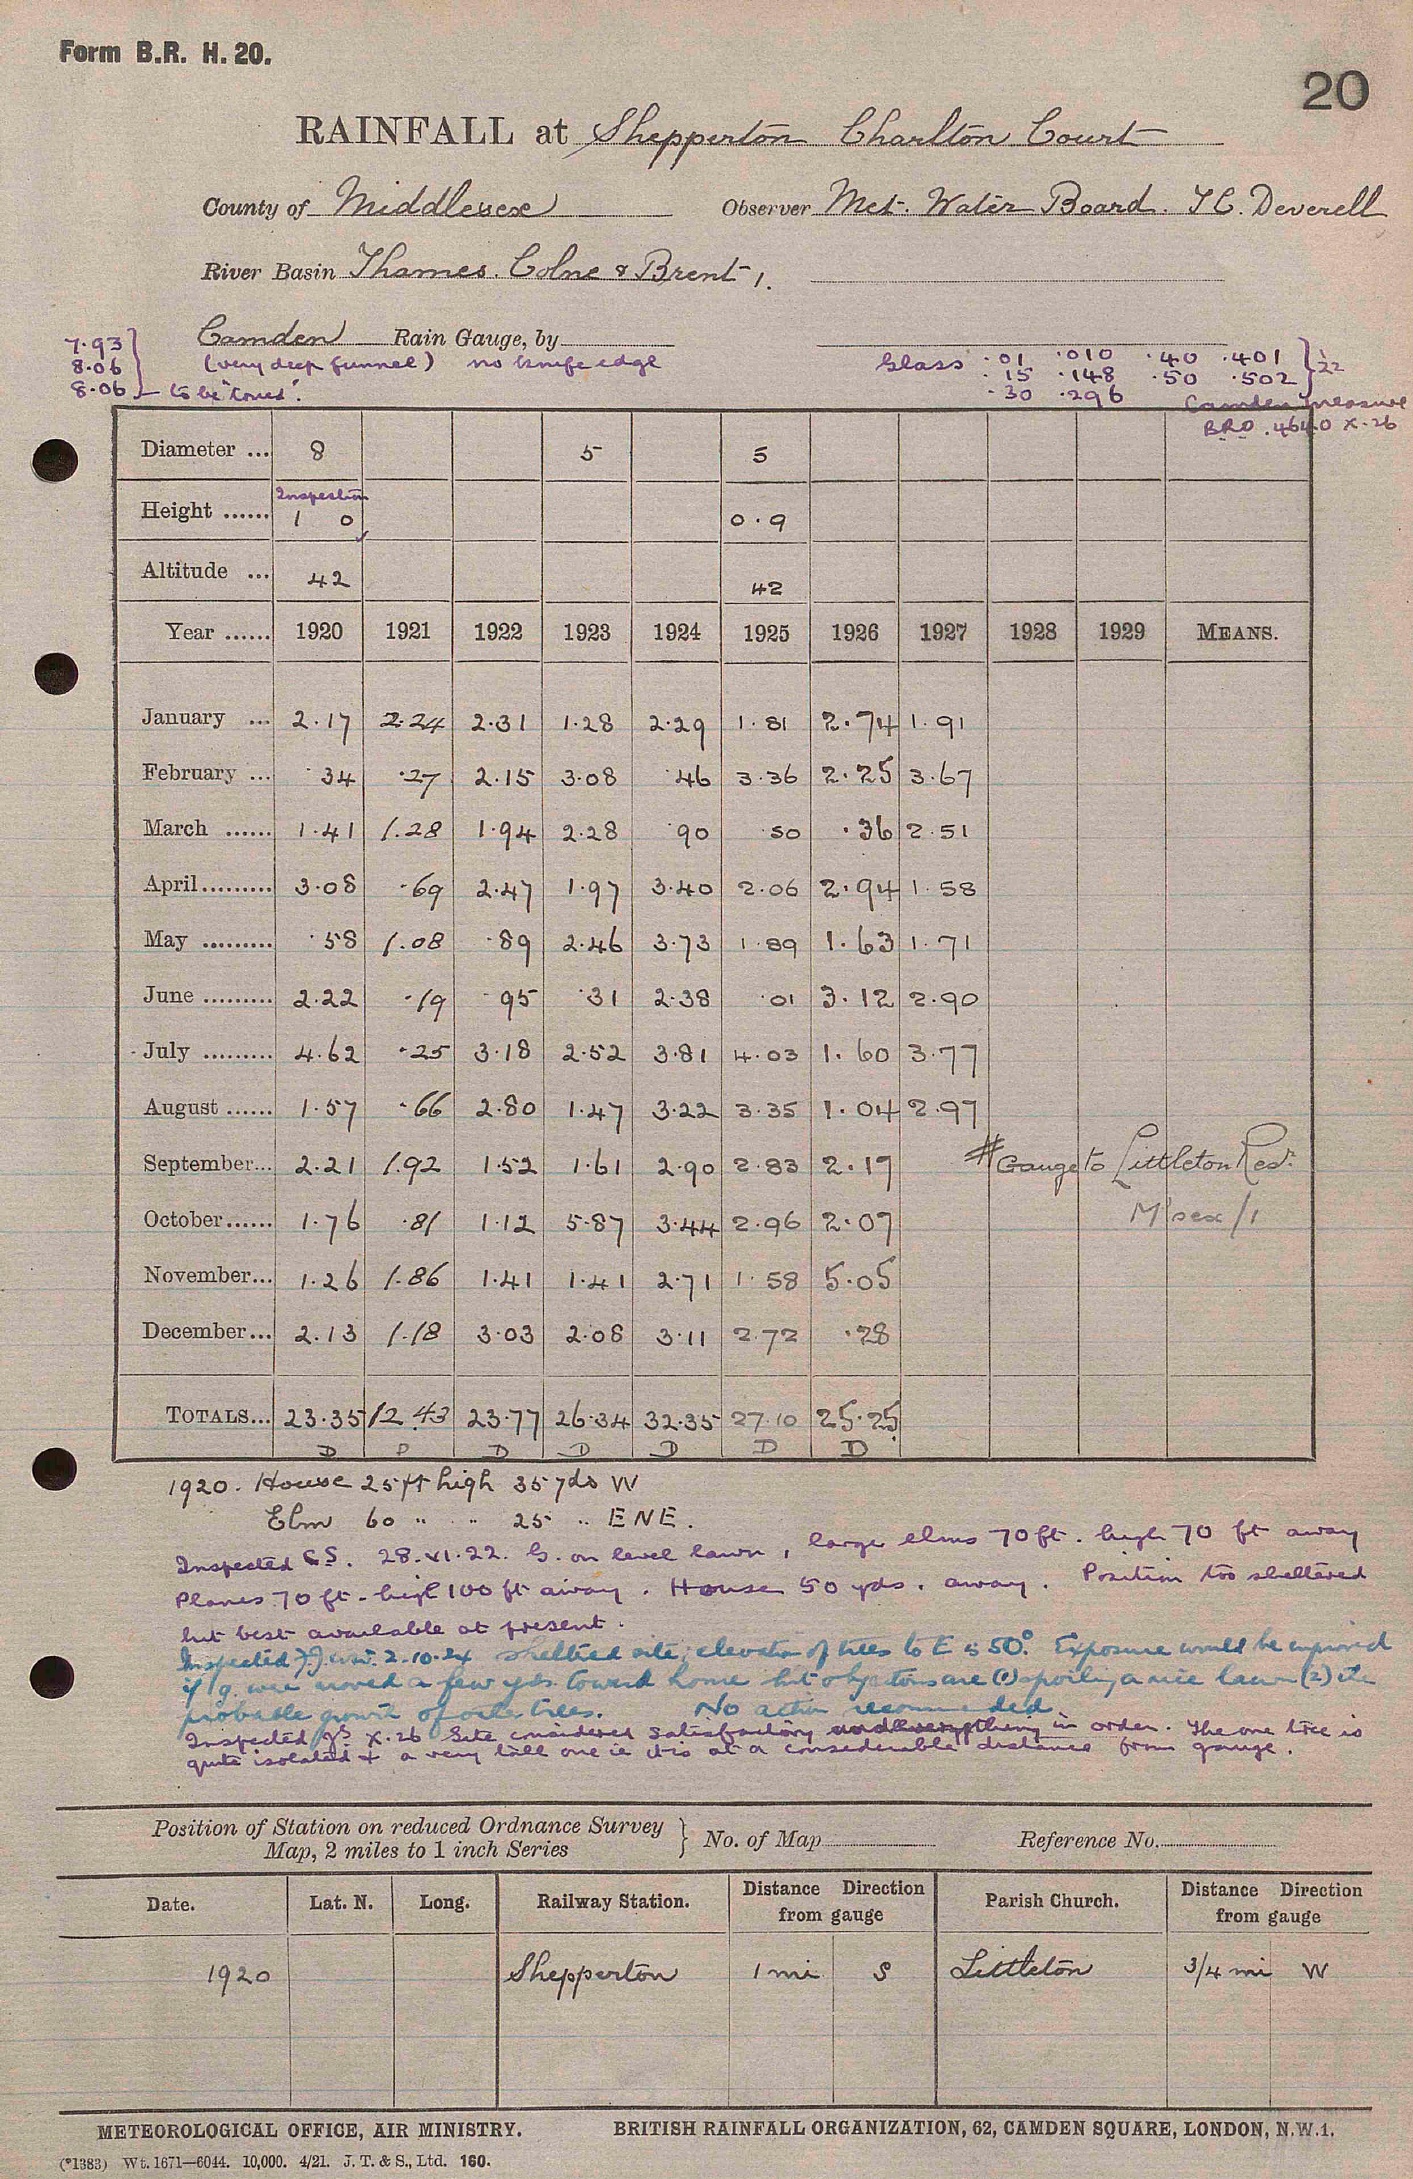 Form B.R. H. 20.
20
RAINFALL at Shepperton Charlton Court
County of Middlesex Observer Met. Water Board. T C. Deverell
River Basin Thames. Colne & Brent 1.
Camden Rain Gauge, by
(very deep funnel) no knife edge
7.93
8.06
8.06 to be "coned".
Glass .01 .010 .40 .401
.15 .148 .50 .502 22
.30 .296
Camden measure
BRO. 4640 X.26
Diameter ... 8 5 5
Inspection
Height ...... 1 0 0.9
Altitude ... 42 42
Year ...... 1920 1921 1922 1923 1924 1925 1926 1927 1928 1929 MEANS.
January ... 2.17 2.24 2.31 1.28 2.29 1.81 2.74 1.91
February ... .34 .27 2.15 3.08 .46 3.36 2.25 3.67
March ...... 1.41 1.28 1.94 2.28 .90 .50 .36 2.51
April......... 3.08 .69 2.47 1.97 3.40 2.06 2.94 1.58
May ......... .58 1.08 .89 2.46 3.73 1.89 1.63 1.71
June ......... 2.22 .19 .95 .31 2.38 .01 3.12 2.90
July ......... 4.62 .25 3.18 2.52 3.81 4.03 1.60 3.77
August ...... 1.57 .66 2.80 1.47 3.22 3.35 1.04 2.97
September... 2.21 1.92 1.52 1.61 2.90 2.83 2.17 # Gauge to Littleton Resr.
October...... 1.76 .81 1.12 5.87 3.44 2.96 2.07 M'sex/1
November... 1.26 1.86 1.41 1.41 2.71 1.58 5.05
December... 2.13 1.18 3.03 2.08 3.11 2.72 .28
TOTALS... 23.35 12.43 23.77 26.34 32.35 27.10 25.25
D D D D D D D
1920. House 25 ft high 35 yds W
Elm 60 " " 25 " ENE.
Inspected C.S. 28.XI.22. G. on level lawn, large elms 70 ft. high 70 ft away
Planes 70 ft. high 100 ft away. House 50 yds. away. Position too sheltered
but best available at present.
Inspected 2.10.24 sheltered site; elevation of trees to E is 50°. Exposure would be improved
if g. were moved a few yds. toward house but objections are (1) spoiling a nice lawn (2) the
probable growth of other trees. No action recommended.
Inspected X.26 Site considered satisfactory and everything in order. The one tree is
quite isolated & a very tall one ie it is at a considerable distance from gauge.
Position of Station on reduced Ordnance Survey
Map, 2 miles to 1 inch Series } No. of Map Reference No.
Date. Lat. N. Long. Railway Station. Distance Direction from gauge Parish Church. Distance Direction from gauge
1920 Shepperton 1 mi S Littleton 3/4 mi W
METEOROLOGICAL OFFICE, AIR MINISTRY. BRITISH RAINFALL ORGANIZATION, 62, CAMDEN SQUARE, LONDON, N.W.1.
(*1383) Wt. 1671—6044. 10,000. 4/21. J. T. & S., Ltd. 160.